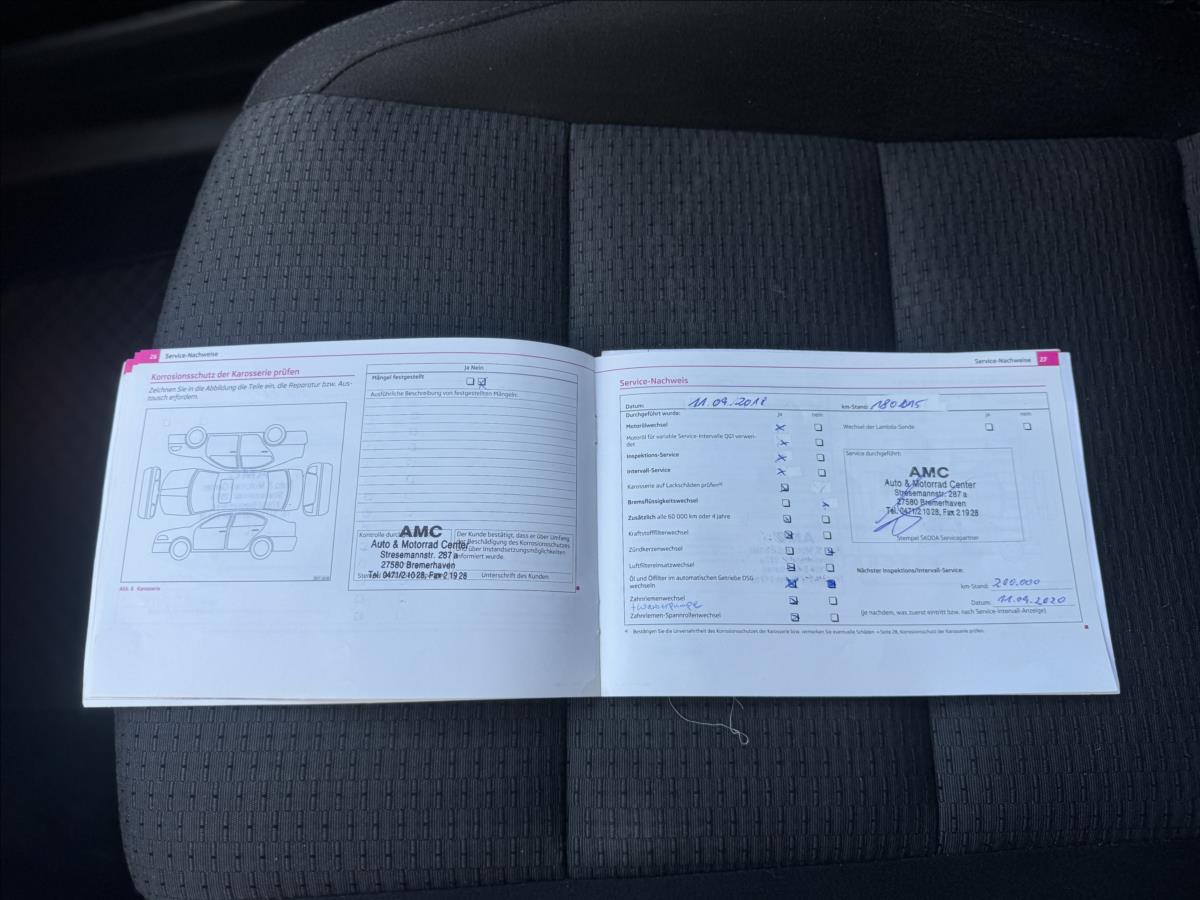 26 Service-Nachweise
Korrosionsschutz der Karosserie prüfen
Zeichnen Sie in die Abbildung die Teile ein, die Reparatur bzw. Aus-
tausch erfordern.
Abb. 6 Karosserie
Ja Nein
Mängel festgestellt
Ausführliche Beschreibung von festgestellten Mängeln:
Kontrolle durch
Der Kunde bestätigt, dass er über Umfang
der Beschädigung des Korrosionsschutzes
über Instandsetzungsmöglichkeiten
informiert wurde.
AMC
Auto & Motorrad Center
Stresemannstr. 287 a
27580 Bremerhaven
Tel. 0471/2 10 28, Fax 2 19 28
Unterschrift des Kunden
Service-Nachweise 27
Service-Nachweis
Datum: 11.09.2018 km-Stand: 180
Durchgeführt wurde: ja nein ja nein
Motorölwechsel
Wechsel der Lambda-Sonde
Motoröl für variable Service-Intervalle QG1 verwen-
det
Inspektions-Service
Intervall-Service
Karosserie auf Lackschäden prüfen
Bremsflüssigkeitswechsel
Zusätzlich alle 60 000 km oder 4 Jahre
Kraftstofffilterwechsel
Zündkerzenwechsel
Luftfiltereinsatzwechsel
Öl und Ölfilter im automatischen Getriebe DSG
wechseln
Zahnriemenwechsel
+ Wasserpumpe
Zahnriemen-Spannrollenwechsel
Service durchgeführt:
AMC
Auto & Motorrad Center
Stresemannstr. 287 a
27580 Bremerhaven
Tel. 0471/2 10 28, Fax 2 19 28
Stempel ŠKODA Servicepartner
Nächster Inspektions/Intervall-Service:
km-Stand: 200.000
Datum: 11.09.2020
(je nachdem, was zuerst eintritt bzw. nach Service-Intervall-Anzeige)
Bestätigen Sie die Unversehrtheit des Korrosionsschutzes der Karosserie bzw. vermerken Sie eventuelle Schäden → Seite 28, Korrosionsschutz der Karosserie prüfen.